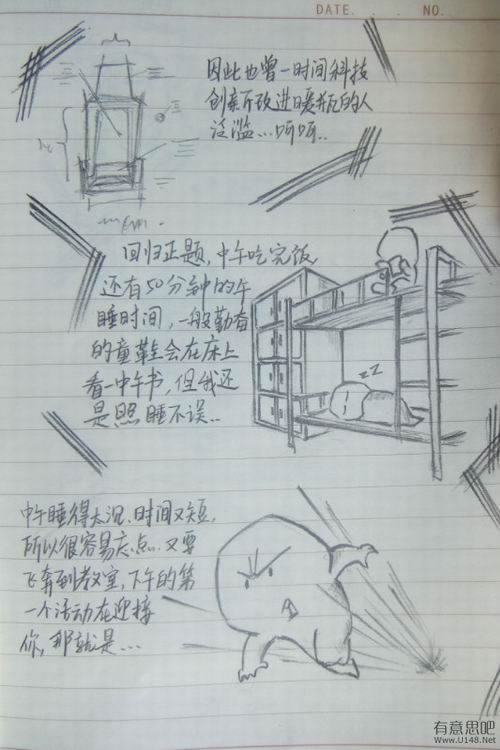 DATE. . . NO.
因此也曾一时间科技
创新所改进暖瓶的人
泛滥...呵呵..
回归正题,中午吃完饭
还有50分钟的午
睡时间,一般勤奋
的童鞋会在床上
看一中午书,但我还
是照睡不误..
zZ
中午睡得太沉,时间又短,
所以很容易忘点...又要
飞奔到教室,下午的第
一个活动在迎接
你,那就是...
有意思吧
www.U148.Net